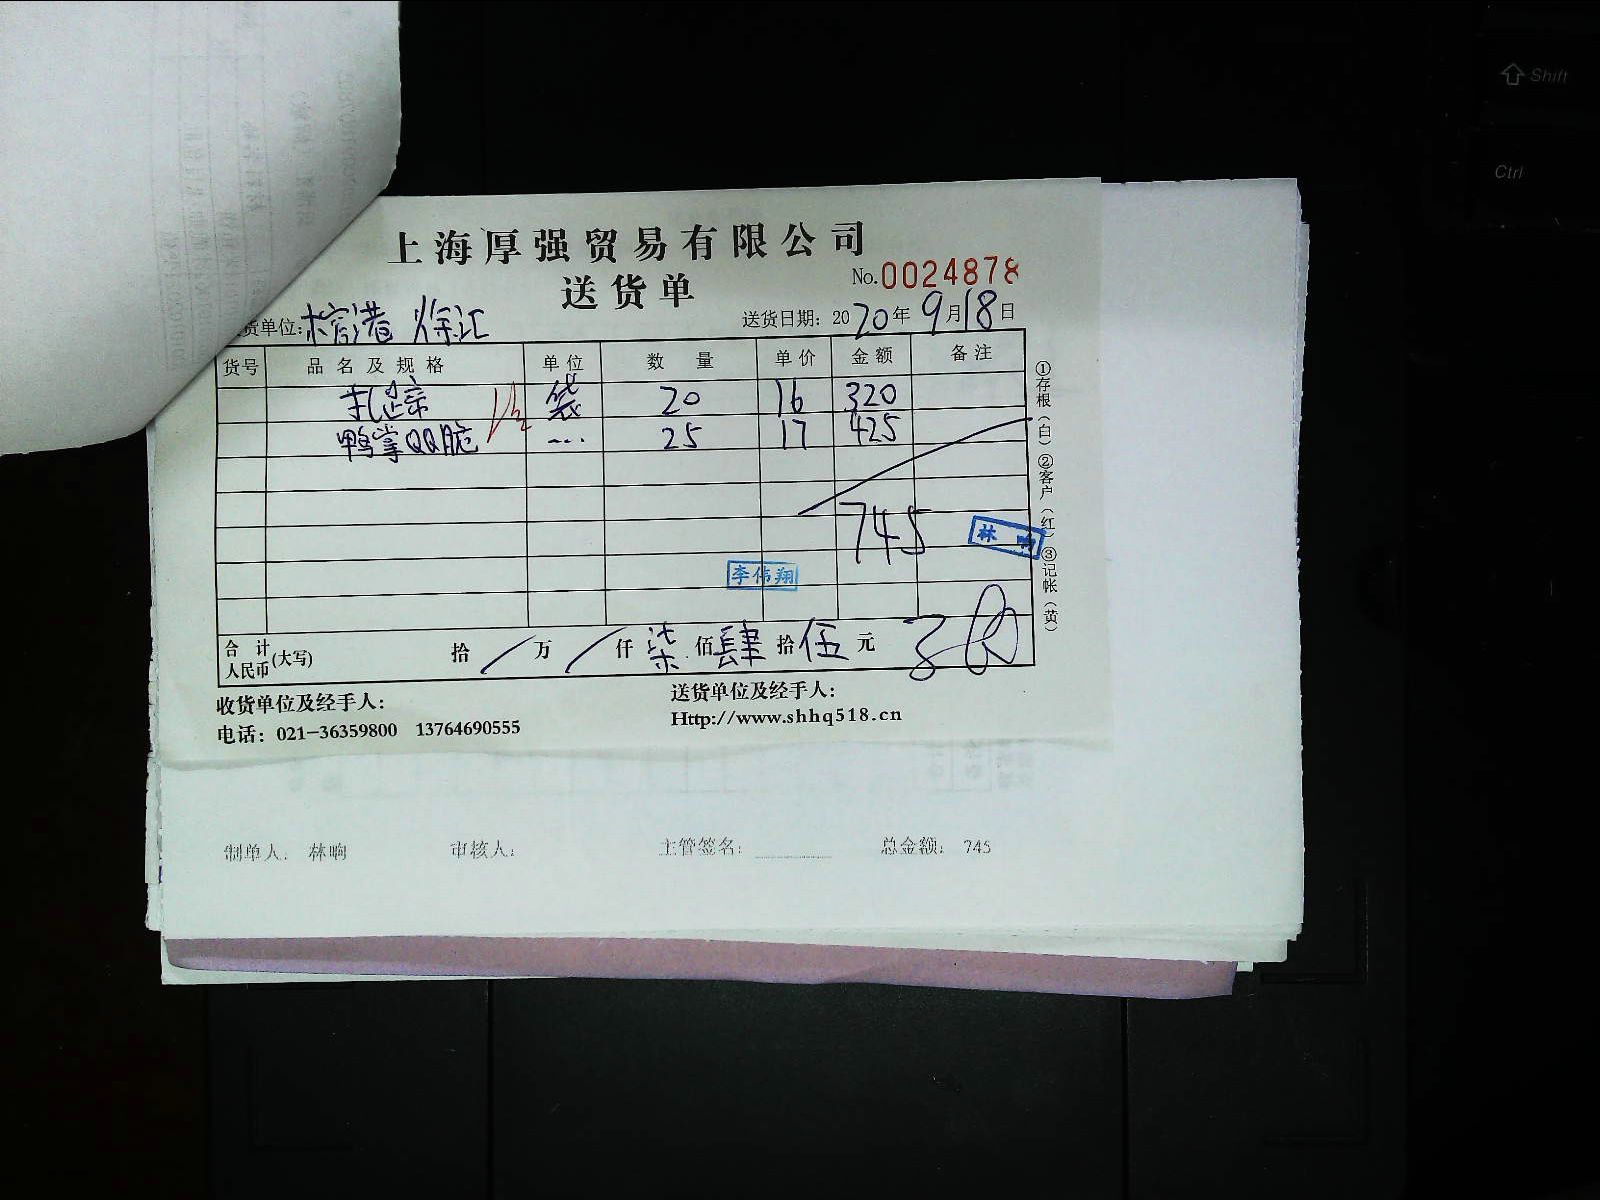 上海厚强贸易有限公司
送货单
No.0024878
货单位: 港 徐汇
送货日期: 2020年9月18日
货号 品名及规格 单位 数量 单价 金额 备注
袋 20 16 320
鸭掌QQ脆 .... 25 17 425
745
林晌
李伟翔
合计人民币(大写) 拾 / 万 / 仟 柒 佰 肆 拾 伍 元
①存根(白) ②客户(红) ③记帐(黄)
收货单位及经手人: 送货单位及经手人:
电话: 021-36359800 13764690555 Http://www.shhq518.cn
制单人: 林晌 审核人: 主管签名: 总金额: 745
Shift
Ctrl